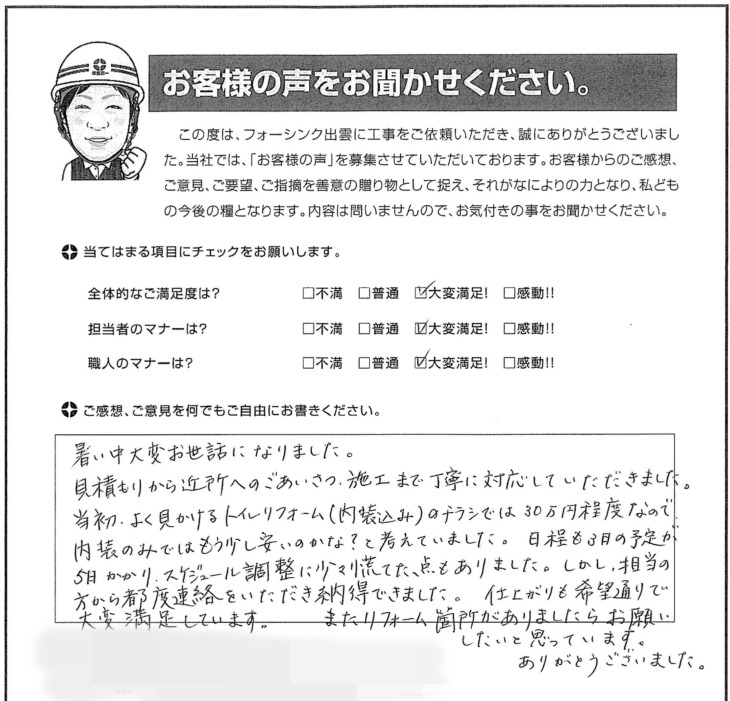 お客様の声をお聞かせください。
この度は、フォーシンク出雲に工事をご依頼いただき、誠にありがとうございまし
た。当社では、「お客様の声」を募集させていただいております。お客様からのご感想、
ご意見、ご要望、ご指摘を善意の贈り物として捉え、それがなによりの力となり、私ども
の今後の糧となります。内容は問いませんので、お気付きの事をお聞かせください。
当てはまる項目にチェックをお願いします。
全体的なご満足度は? □不満 □普通 ☑大変満足! □感動!!
担当者のマナーは? □不満 □普通 ☑大変満足! □感動!!
職人のマナーは? □不満 □普通 ☑大変満足! □感動!!
ご感想、ご意見を何でもご自由にお書きください。
暑い中大変お世話になりました。
見積もりから近所へのごあいさつ、施工まで丁寧に対応していただきました。
当初、よく見かけるトイレリフォーム(内装込み)のチラシでは30万円程度なので、
内装のみではもう少し安いのかな?と考えていました。日程も3日の予定が
5日かかり、スケジュール調整に少々慌てた点もありました。しかし、担当の
方から都度連絡をいただき納得できました。仕上がりも希望通りで
大変満足しています。またリフォーム箇所がありましたらお願い
したいと思っています。
ありがとうございました。